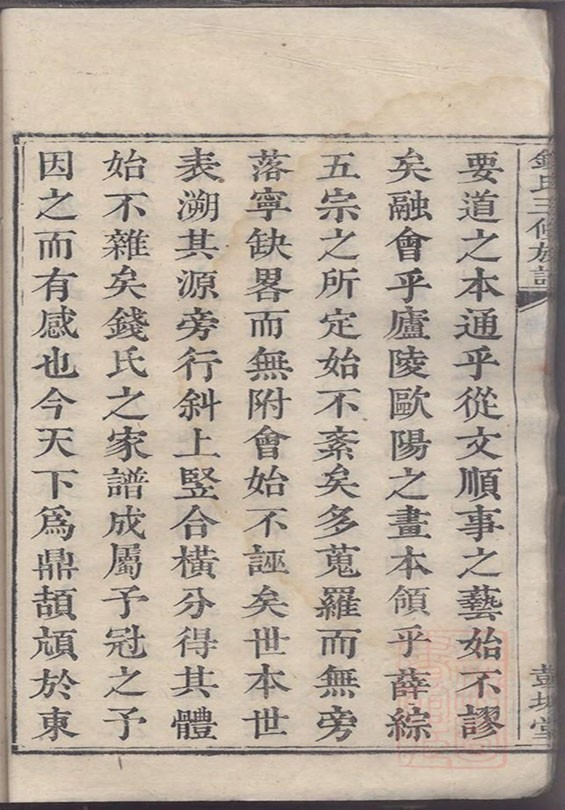 錢氏三修族譜
要道之本通乎從文順事之藝始不謬
矣融會乎廬陵歐陽之畫本領乎薛綜
五宗之所定始不紊矣多蒐羅而無旁
落寧缺畧而無附會始不誣矣世本世
表溯其源旁行斜上竪合橫分得其體
始不雜矣錢氏之家譜成屬予冠之予
因之而有感也今天下爲鼎頡頏於東
彭城堂